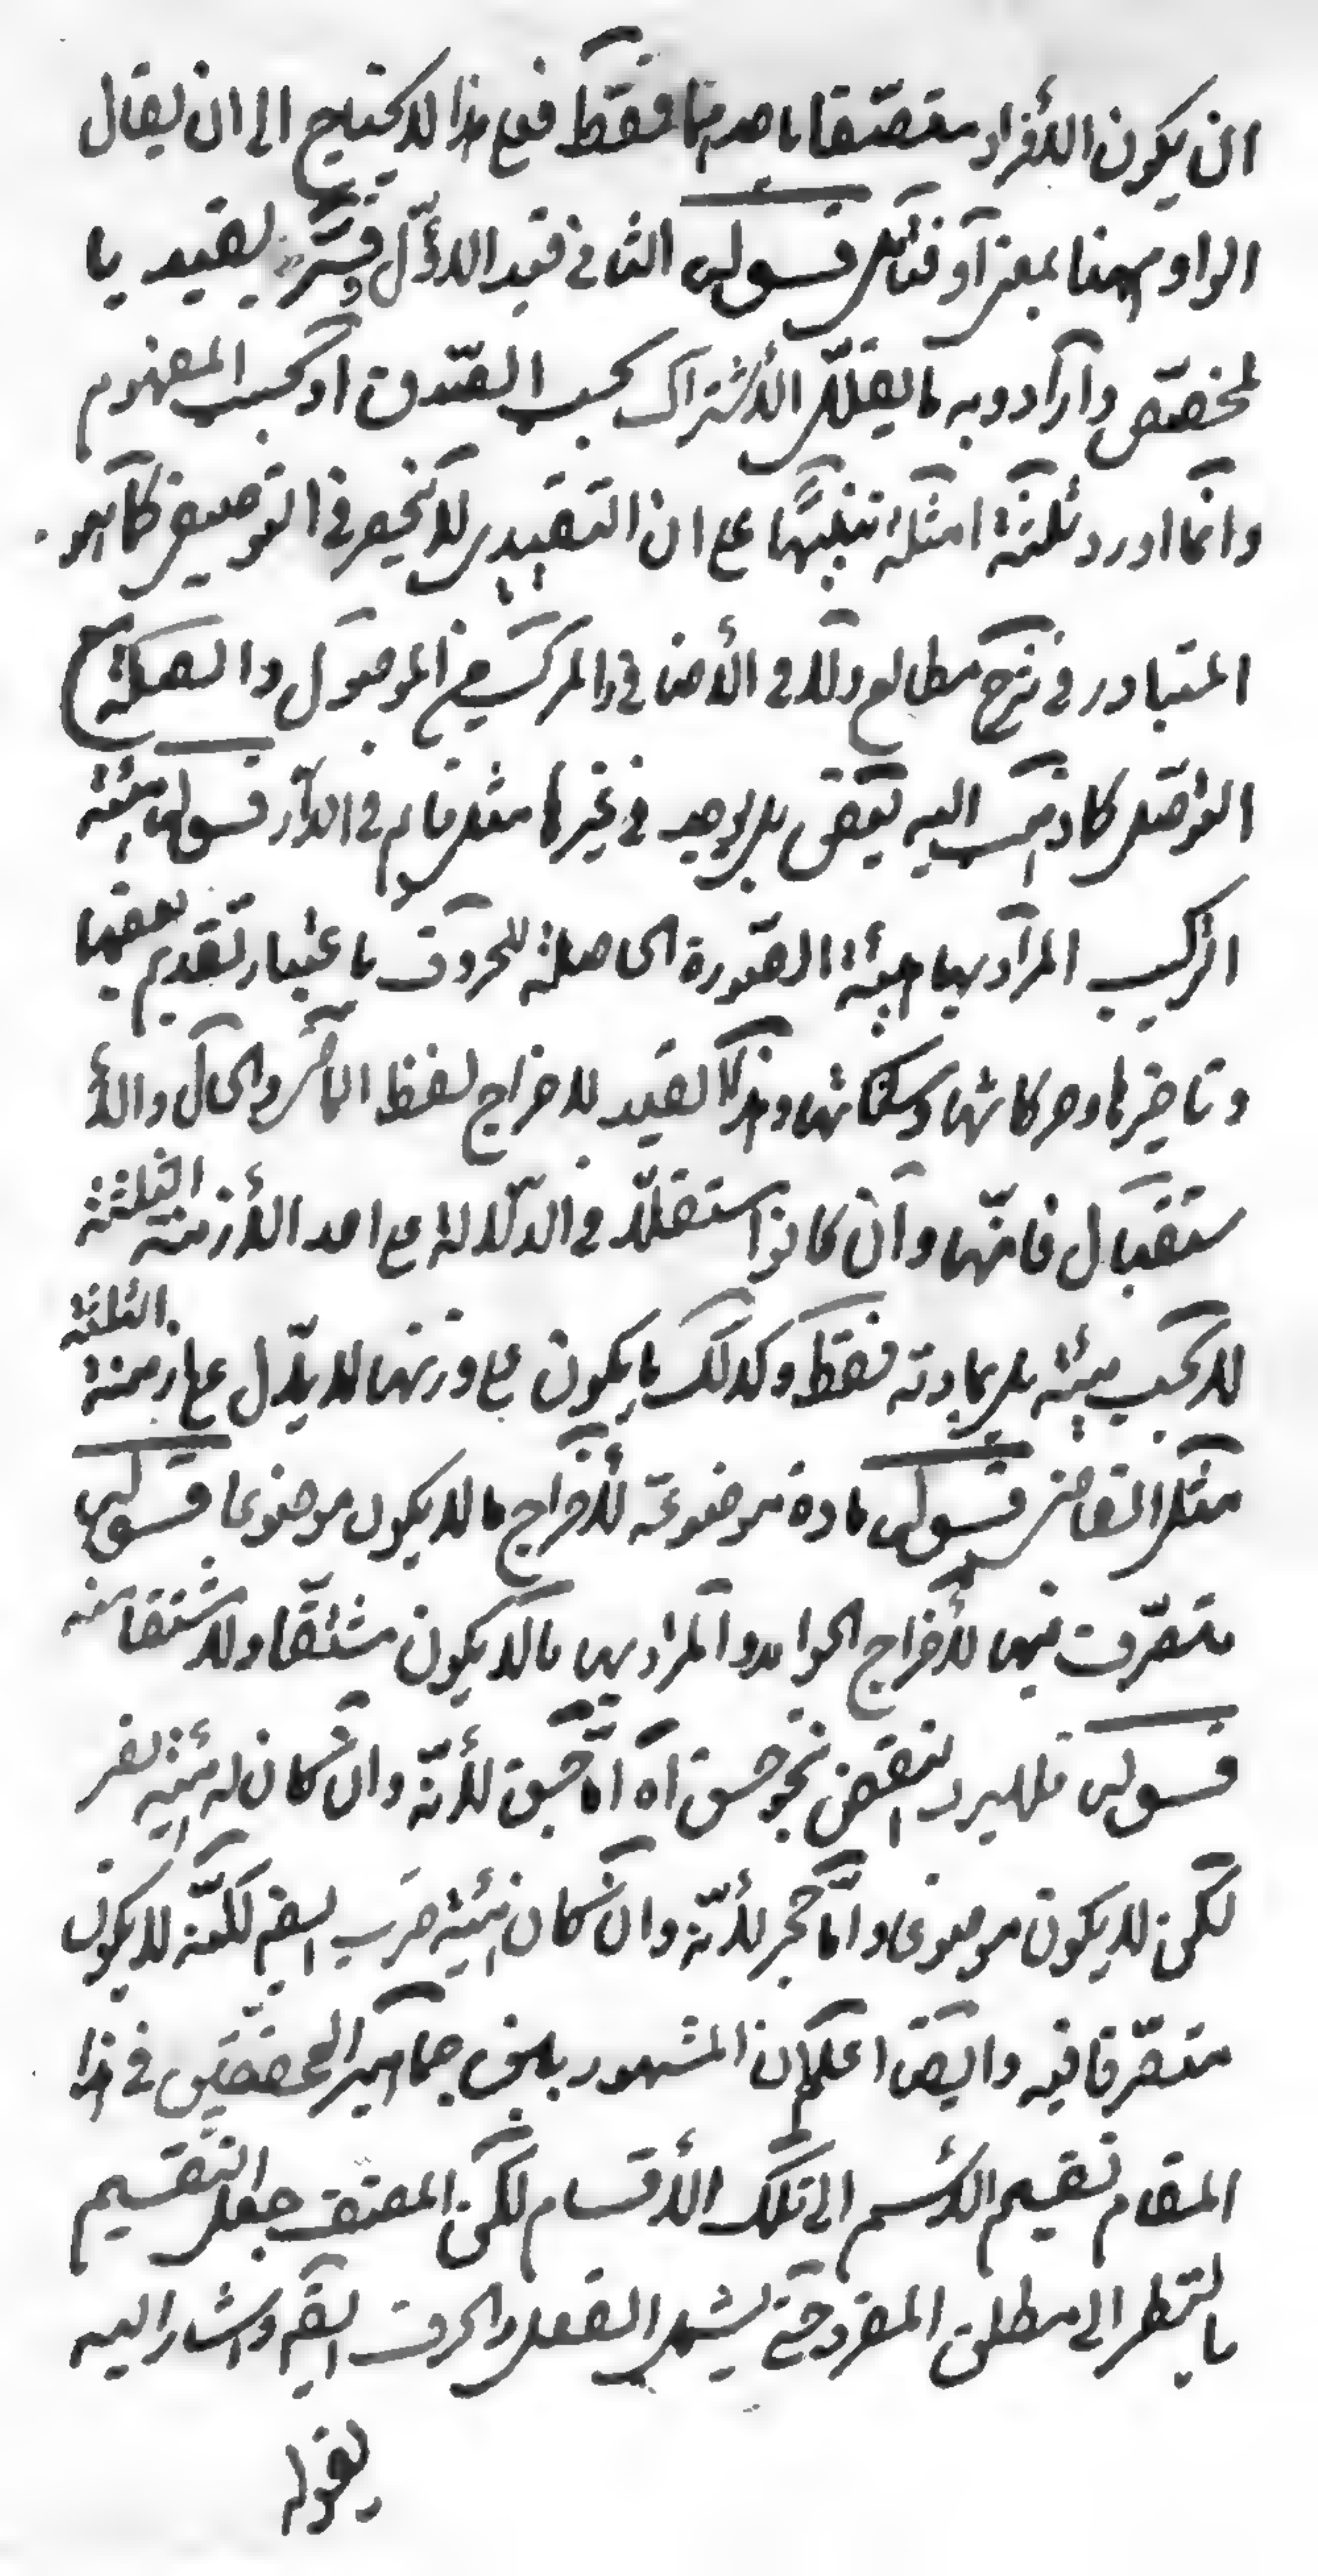 ان يكون الأفراد متصفا باحدهما فقط فعلى هذا لا يحتيج الى ان يقال
الواو ههنا بمعنى أو فتأمل قولى الثانى قيد الاول فسّر لقيد با
لمخصّص وارادوبه ما يقلّل الأشتراك بحسب الصّدق او بحسب المفهوم
وانما اورد ثلثة امثلة تنبيها على ان التقييدى لا ينحصر فى التوصيفى كما هو
المتبادر فى شرح مطالع ولا فى الأضافى والمركب من الموصول والصلة
التوصّلى كاذهب اليه بعض بل يوجد فى غيرها مثل قايم فى الدار قولى هيئة
التركيب المراد بها هيئة الصّورة الحاصلة للحروف باعتبار تقديم بعضها
وتاخيرها وحركاتها وسكناتها وهذا القيد لاخراج لفظ الماضى والحال والأ
ستقبال فانّها وان كانوا مستقلّا فى الدلالة على احد الأزمنة الثلثة
لا بحسب هيئته بل بمادته فقط وكذلك ما يكون على وزنها لا يدّل على ازمنة الثلثة
مثل القاضى قولى مادة موضوعة لأخراج ما لا يكون موضوعا قولى
متصرّف فيها لأخراج الجوامد والمراد بها ما لا يكون مشتقّا ولا مشتقا منه
قولى فلا يرد لنقض نحو حسق اه اما حسق لأنّه وان كان له هيئة نصر
لكن لا يكون موضوعا واما حجر لأنّه وان كان هيئة ضرب ايضا لكنّه لا يكون
متصّرفا فيه وايضا اعلم ان المشهور بين جماهير المحققين فى هذا
المقام تقسيم الأسم الى تلك الأقسام لكن المصنف جعل التقسيم
بالنظر الى مطلق المفرد حتى يشمل الفعل والحرف ايضا واشار اليه
بقوله